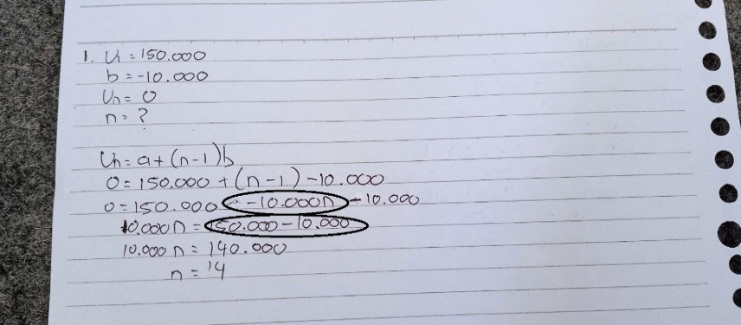 1. U1 = 150.000
b = -10.000
Un = 0
n = ?
Un = a + (n-1) b
0 = 150.000 + (n-1) -10.000
0 = 150.000 - -10.000n - 10.000
10.000n = 150.000 - 10.000
10.000 n = 140.000
n = 14